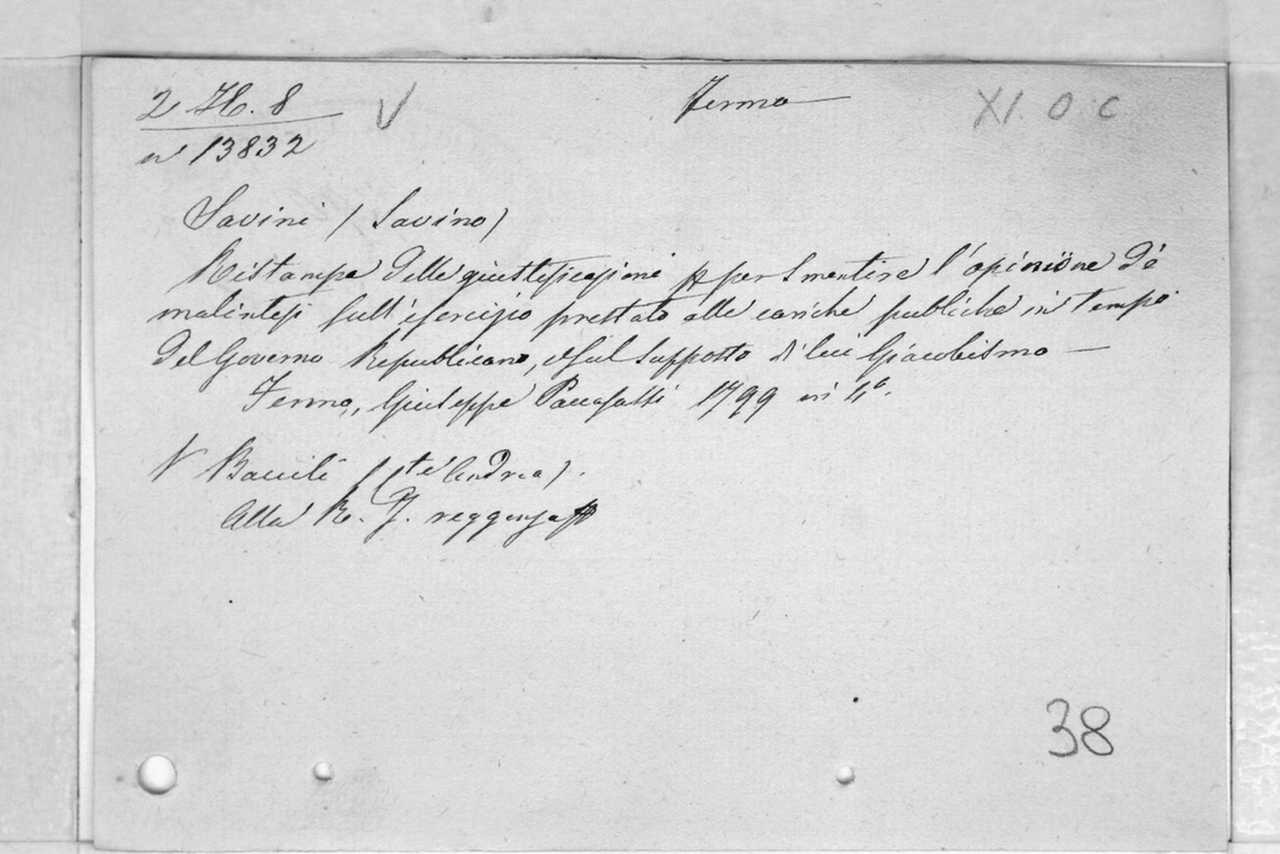 2 H. 8 V Fermo XI. O C
n° 13832
Savini (Savino)
Ristampa delle giustificazioni per smentire l'opinione de'
malintesi sull'esercizio prestato alle cariche publiche in tempo
del Governo Republicano, e sul supposto di lui Giacobismo —
Fermo, Giuseppe Paccasassi 1799 in 4°.
V Bacili (Cte Andrea).
Alla R. I. reggenza
38